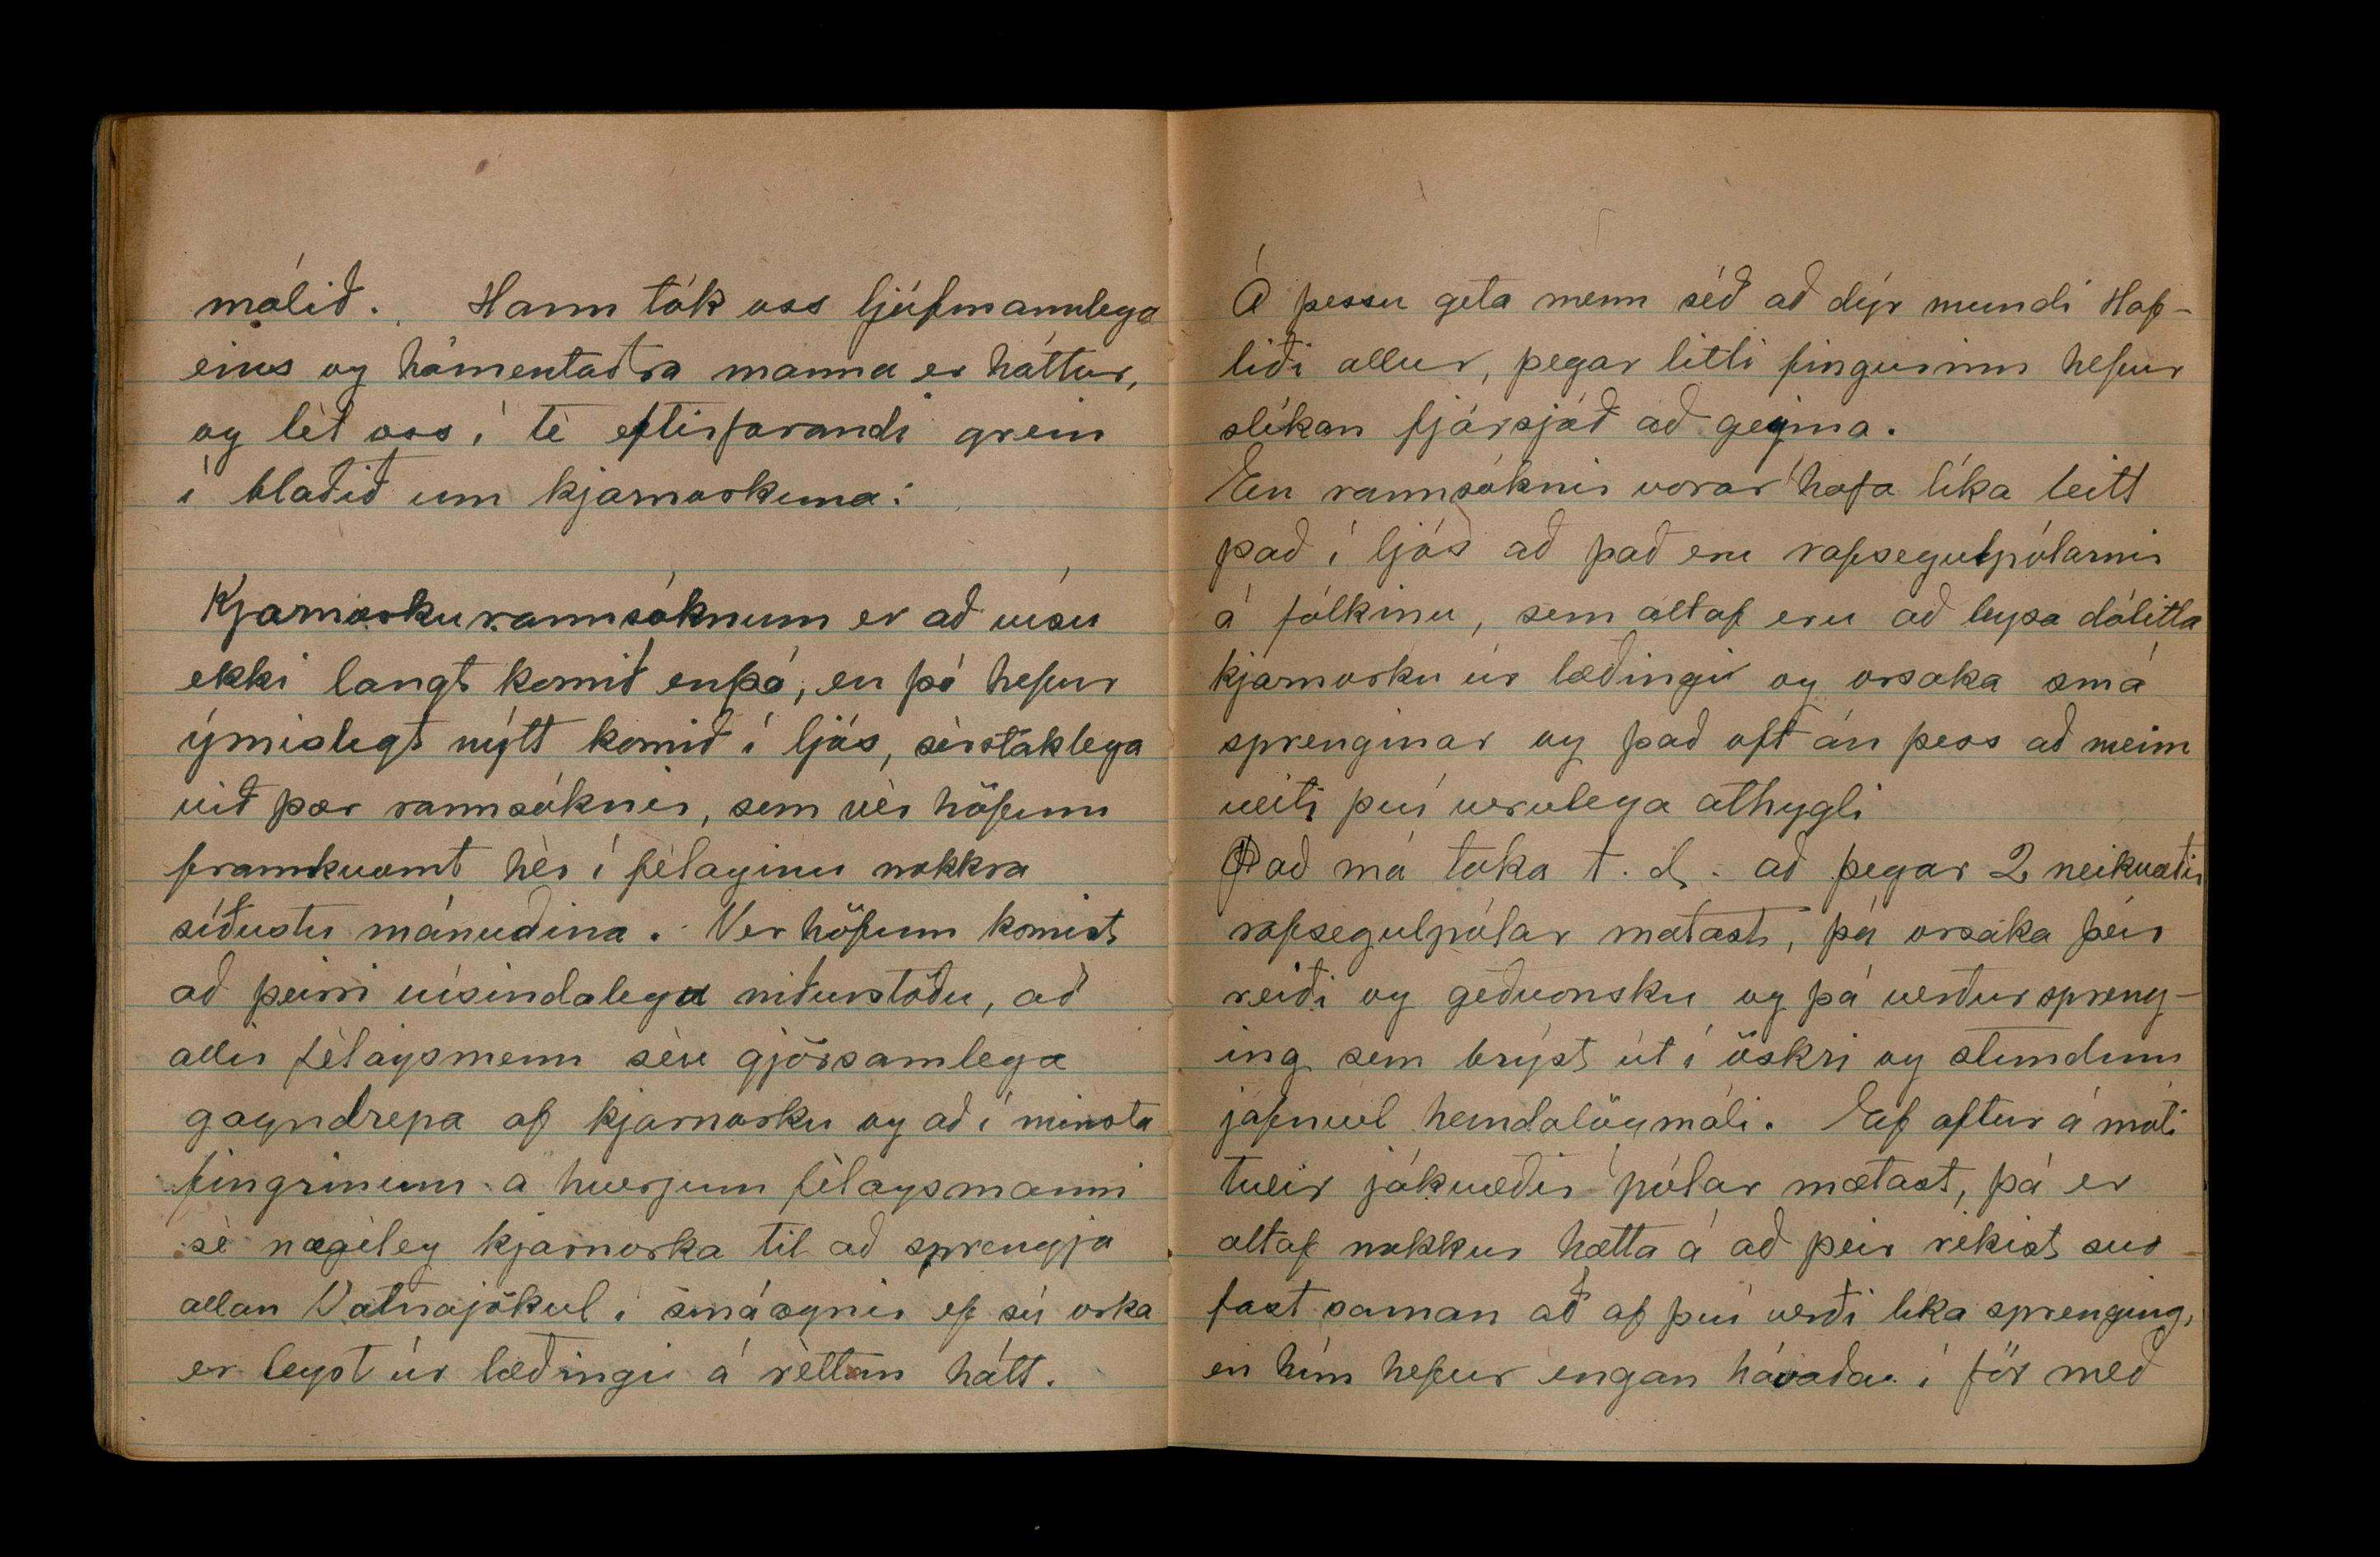 málið. Hann tók oss ljúfmannlega
eins og hámentaðra manna er háttur,
og lèt oss í tè eftirfarandi grein
í blaðið um kjarnorkuna:
Kjarnorkurannsóknum er að vísu
ekki langt komið enþá, en þó hefur
ýmislegt nýtt komið í ljós, sèrstaklega
við þær rannsóknir, sem vèr höfum
framkvæmt hèr í fèlaginu nokkra
síðustu mánuðina. Ver höfum komist
að þeirri vísindalegu niðurstöðu, að
allir fèlagsmenn sèu gjörsamlega
gagndrepa af kjarnorku og að í minsta
fingrinum á hverjum fèlagsmanni
sè nægileg kjarnorka til að sprengja
allan Vatnajökul í smáagnir ef sú orka
er leyst úr læðingi á rèttan hátt.
Á þessu geta menn séð að dýr mundi Haf-
liði allur, þegar litli fingurinn hefur
slíkan fjársjóð að geyma.
En rannsóknir vorar hafa líka leitt
það í ljós að það eru rafsegulpólarnir
á fólkinu, sem altaf eru að leysa dálitla
kjarnorku úr læðingi og orsaka smá
sprenginar og það oft án þess að meim
veiti því verulega athygli
Það má taka t.d. að þegar 2 neikvæðir
rafsegulpólar mætast, þá orsaka þeir
reiði og geðvonsku og þá verður spreng-
ing sem brýst út í öskri og stundum
jafnvel hendalögmáli. Ef aftur á móti
tveir jákvæðir pólar mætast, þá er
altaf nokkur hætta á að þeir rekist svo
fast saman að af því verði líka sprenging,
en hún hefur engan hávaða í för með